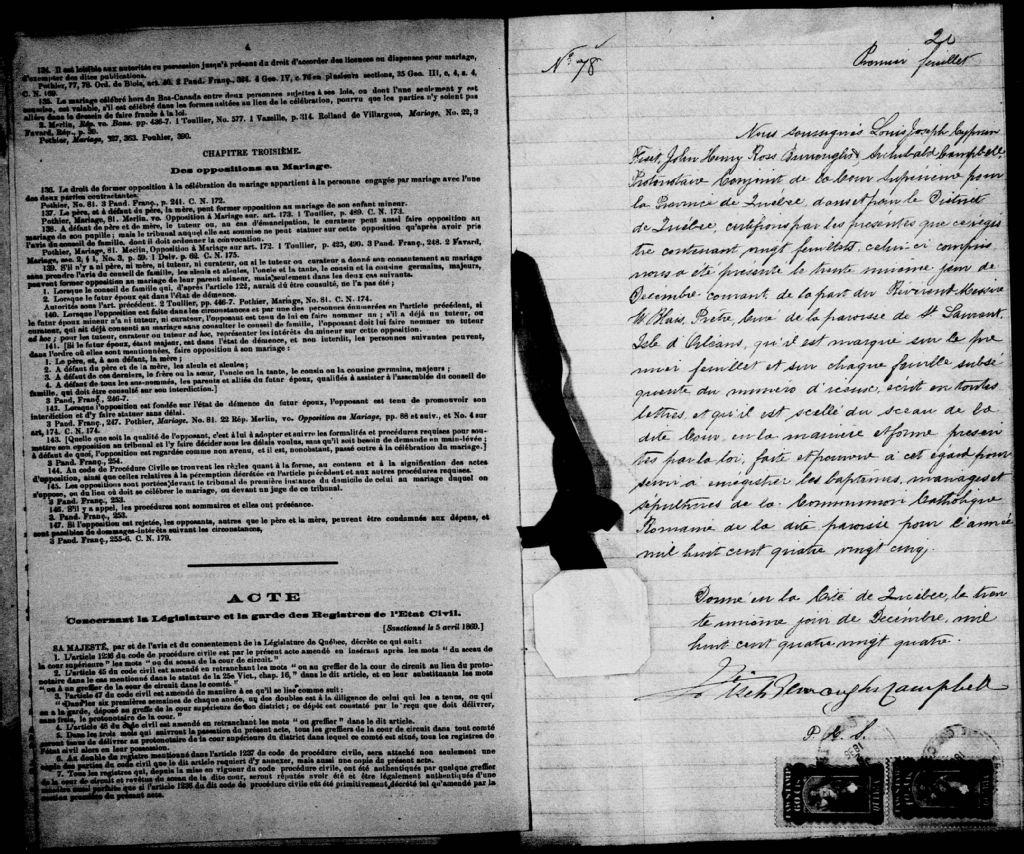 4
134. Il est loisible aux autorités en possession jusqu'à présent du droit d'accorder des licences ou dispenses pour mariage,
d'exempter des dites publications.
Pothier, 77, 78. Ord. de Blois, art. 40. 2 Pand. Franç., 324. 4 Geo. IV, c. 76 en plusieurs sections, 35 Geo. III, c, 4, s. 4.
C. N. 169.
135. Le mariage célébré hors du Bas-Canada entre deux personnes sujettes à ses lois, ou dont l'une seulement y est
soumise, est valable, s'il est célébré dans les formes usitées au lieu de la célébration, pourvu que les parties n'y soient pas
allées dans le dessein de faire fraude à la loi.
2. Merlin, Rép. vo. Bans. pp. 436-7. 1 Toullier, No. 577. 1 Vazeille, p. 314. Rolland de Villargues, Mariage, No. 22, 3
Favard, Rép., p. 30.
Pothier, Mariage, 327, 363. Pouhier, 390.
CHAPITRE TROISIÈME.
Des oppositions au Mariage.
136. Le droit de former opposition à la célébration du mariage appartient à la personne engagée par mariage avec l'une
des deux parties contractantes.
Pothier, No. 81. 3 Pand. Franç., p. 241. C. N. 172.
137. Le père, et à défaut du père, la mère, peut former opposition au mariage de son enfant mineur.
Pothier, Mariage, 81. Merlin. vo. Opposition à Mariage sur. art. 173. 1 Toullier, p. 489. C. N. 173.
138. A défaut du père et de la mère, le tuteur ou, au cas d'émancipation, le curateur peut aussi faire opposition au
mariage de son pupille; mais le tribunal auquel elle est soumise ne peut statuer sur cette opposition qu'après avoir pris
l'avis du conseil de famille, dont il doit ordonner la convocation.
Pothier, Mariage, 81. Merlin, Opposition à Mariage sur art. 172. 1 Toullier, p. 425, 490. 3 Pand. Franç., 248. 2 Favard,
Mariage, sec. 2, § 1, No. 3, p. 59. 1 Delv. p. 62. C. N. 175.
139. S'il n'y a ni père, ni mère, ni tuteur, ni curateur, ou si le tuteur ou curateur a donné son consentement au mariage
sans prendre l'avis du conseil de famille, les aïeuls et aïeules, l'oncle et la tante, le cousin et la cousine germains, majeurs,
peuvent former opposition au mariage de leur parent mineur, mais seulement dans les deux cas suivants.
1. Lorsque le conseil de famille qui, d'après l'article 122, aurait dû être consulté, ne l'a pas été;
2. Lorsque le futur époux est dans l'état de démence.
Autorités sous l'art. précédent. 2 Toullier, pp. 486-7. Pothier, Mariage, No. 81. C. N. 174.
140. Lorsque l'opposition est faite dans les circonstances et par une des personnes énumérées en l'article précédent, si
le futur époux mineur n'a ni tuteur, ni curateur, l'opposant est tenu de lui en faire nommer un; s'il a déjà un tuteur, ou
curateur, qui ait déjà consenti au mariage sans consulter le conseil de famille, l'opposant doit lui faire nommer un tuteur
ad hoc; pour les tuteur, curateur ou tuteur ad hoc, représenter les intérêts du mineur sur cette opposition.
141. [Si le futur époux, étant majeur, est dans l'état de démence, et non interdit, les personnes suivantes peuvent,
dans l'ordre où elles sont mentionnées, faire opposition à son mariage:
1. Le père, et, à son défaut, la mère;
2. A défaut du père et de la mère, les aïeuls et aïeules;
3. A défaut de ces derniers, le frère ou la sœur, l'oncle ou la tante, le cousin ou la cousine germains, majeurs;
4. A défaut de tous les sus-nommés, les parents et alliés du futur époux, qualifiés à assister à l'assemblée du conseil de
famille, qui doit être consulté sur son interdiction.]
3 Pand. Franç., 246-7.
142. Lorsque l'opposition est fondée sur l'état de démence du futur époux, l'opposant est tenu de promouvoir son
interdiction et d'y faire statuer sans délai.
3 Pand. Franç., 247. Pothier, Mariage, No. 81. 22 Rép. Merlin, vo. Opposition au Mariage, pp. 88 et suiv., et No. 4 sur
art, 174. C. N. 174.
143. [Quelque que soit la qualité de l'opposant, c'est à lui à adopter et suivre les formalités et procédures requises pour sou-
mettre son opposition au tribunal et l'y faire décider sous les délais voulus, sans qu'il soit besoin de demande en main-levée;
à défaut de quoi, l'opposition est regardée comme non avenu, et il est, nonobstant, passé outre à la célébration du mariage.]
3 Pand. Franç., 254.
144. Au code de Procédure Civile se trouvent les règles quant à la forme, au contenu et à la signification des actes
d'opposition, ainsi que celles relatives à la péremption décrétée en l'article précédent et aux autres procédures requises.
145. Les oppositions sont portées devant le tribunal de première instance du domicile de celui au mariage duquel on
s'oppose, ou du lieu où doit se célébrer le mariage, ou devant un juge de ce tribunal.
3 Pand. Franç., 253.
146. S'il y a appel, les procédures sont sommaires et elles ont préséance.
3. Pand. Franç., 253.
147. Si l'opposition est rejetée, les opposants, autres que le père et la mère, peuvent être condamnés aux dépens, et
sont passibles de dommages-intérêts suivant les circonstances,
3 Pand. Franç., 255-6. C. N. 179.
ACTE
Concernant la Législature et la garde des Registres de l'Etat Civil.
[Sanctionné le 5 avril 1869.]
SA MAJESTÉ, par et de l'avis et du consentement de la Législature de Québec, décrète ce qui suit:
1. L'article 1236 du code de procédure civil est par le présent acte amendé en insérant après les mots "du sceau de
la cour supérieure" les mots "ou du sceau de la cour de circuit."
2. L'article 45 du code civil est amendé en retranchant les mots "ou au greffier de la cour de circuit au lieu du proto-
notaire dans le cas mentionné dans le statut de la 25e Vict., chap. 16," dans le dit article, et en leur substituants les mots
"ou à un greffier de la cour de circuit dans le comté."
3. L'article 47 du code civil est amendé de manière à ce qu'il se lise comme suit:
"Dans les six premières semaines de chaque année, un des doubles est à la diligence de celui qui les a tenus, ou qui
en a la garde, déposé au greffe de la cour supérieure de son district; ce dépôt est constaté par le reçu que doit délivrer,
sans frais, le protonotaire de la cour."
4. L'article 48 du code civil est amendé en retranchant les mots "ou greffier" dans le dit article.
5. Dans les trois mois qui suivront la passation du présent acte, tous les greffiers de la cour de circuit dans tout comté
seront tenus de délivrer au protonotaire de la cour supérieure du district dans lequel ce comté est situé, tous les registres de
l'état civil alors en leur possession.
6. Au double du registre mentionné dans l'article 1237 du code de procédure civile, sera attaché non seulement une
copie des parties du code civil que le dit article requiert d'y annexer, mais aussi une copie du présent acte.
7. Tous les registres qui, depuis la mise en vigueur du code de procédure civile, ont été authentiqués par quelque greffier
de la cour de circuit et revêtus du sceau de la dite cour, seront réputés avoir été et être légalement authentiqués d'une
manière aussi parfaite que si l'article 1236 du dit code de procédure civile eût été primitivement décrété tel qu'amendé par la
section première du présent acte.
No 78
20
Premier feuillet
Nous soussignés Louis Joseph Cyprien
Fiset, John Henry Ross Burroughs & Archibald Campbell,
Protonotaire Conjoint de la Cour Supérieure pour
la Province de Québec, dans et pour le District
de Québec, certifions par les présentes que ce régis
tre contenant vingt feuillets, celui-ci compris
nous a été présenté le trente unième jour de
Décembre courant de la part du Révérend Messire
Blais, Prêtre, Curé de la paroisse de St Laurent
Isle d'Orléans, qu'il est marqué sur le pre
mier feuillet et sur chaque feuillet subsé
quente du numéro d'icelui, écrit en toutes
lettres, et qu'il est scellé du sceau de la
dite Cour, en la manière et forme prescri
tes par la loi, faite et pourvue à cet égard pour
servir à enregistrer les baptêmes, mariages et
sépultures de la Communion Catholique
Romaine de la dite paroisse pour l'année
mil huit cent quatre vingt cinq.
Donné en la Cité de Québec, le tren
te unième jour de Décembre, mil
huit cent quatre vingt quatre.
Fiset Burroughs Campbell
P. C. S.
LAW STAMP
QUEBEC